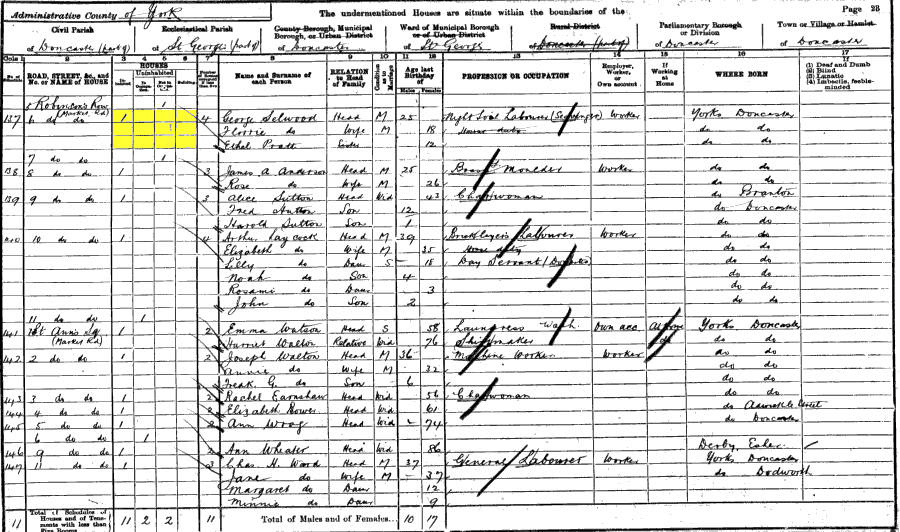 Administrative County of York The undermentioned Houses are situate within the boundaries of the Page 23
Civil Parish Ecclesiastical Parish County Borough, Municipal Borough, or Urban District Ward of Municipal Borough or of Urban District Rural District Parliamentary Borough or Division Town or Village or Hamlet
of Doncaster (part of) of St George (part of) of Doncaster of St George of Doncaster (part of) of Doncaster of Doncaster
Cols 1 2 3 4 5 6 7 8 9 10 11 12 13 14 15 16 17
ROAD, STREET, &c., and No. or NAME of HOUSE HOUSES Uninhabited Building Name and Surname of each Person RELATION to Head of Family Age last Birthday of Males Females PROFESSION OR OCCUPATION Employer, Worker, or Own account If Working at Home WHERE BORN (1) Deaf and Dumb (2) Blind (3) Lunatic (4) Imbecile, feeble-minded
5 Robinson's Row 1
137 6 do do (Market Rd) 1 4 George Selwood Head M 25 Night Soil Labourer (Scavenger) Worker Yorks Doncaster
Florrie do Wife M 18 do do
Ethel Pratt Sister 12 do do
7 do do 1
138 8 do do 1 3 James A Anderson Head M 25 Brass Moulder Worker do do
Rose do Wife M 26 do do
139 9 do do 1 3 Alice Sutton Head Wid 43 Charwoman do Branton
Fred Sutton Son 12 do Doncaster
Harold Sutton Son 1 do do
140 10 do do 1 4 Arthur Laycock Head M 39 Bricklayer's Labourer Worker do do
Elizabeth do Wife M 35 do do
Lilly do Daur S 18 Day Servant (Domestic) do do
Noah do Son 4 do do
Rosami do Daur 3 do do
John do Son 2 do do
11 do do 1
141 1 St Ann's Sq (Market Rd) 1 2 Emma Watson Head S 58 Laundress Wash Own acc At home Yorks Doncaster
Harriet Walton Relative Wid 76 do do do
142 2 do do 1 2 Joseph Walton Head M 36 Machine Worker Worker do do
Annie do Wife M 32 do do
Fredk G. do Son 6 do do
143 3 do do 1 2 Rachel Earnshaw Head Wid 56 Charwoman do do
144 4 do do 1 2 Elizabeth Bower Head Wid 61 do Adwick le Street
145 5 do do 1 2 Ann Wrag Head Wid 74 do Doncaster
6 do do 1
146 9 do do 1 2 Ann Wheater Head Wid 86 Derby
147 11 do do 1 3 Chas H. Wood Head M 37 General Labourer Worker Yorks Doncaster
Jane do Wife M 37 do Dodworth
Margaret do Daur 12
Minnie do Daur 9
11 Total of Schedules of Houses and of Tenements with less than Five Rooms 11 2 2 11 Total of Males and of Females... 10 17